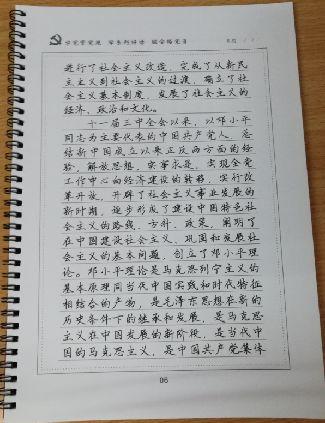 学党章党规 学系列讲话 做合格党员
进行了社会主义改造，完成了从新民
主主义到社会主义的过渡，确立了社
会主义基本制度，发展了社会主义的
经济、政治和文化。
十一届三中全会以来，以邓小平
同志为主要代表的中国共产党人，总
结新中国成立以来正反两方面的经
验，解放思想，实事求是，实现全党
工作中心向经济建设的转移，实行改
革开放，开辟了社会主义事业发展的
新时期，逐步形成了建设中国特色社
会主义的路线、方针、政策，阐明了
在中国建设社会主义、巩固和发展社
会主义的基本问题，创立了邓小平理
论。邓小平理论是马克思列宁主义的
基本原理同当代中国实践和时代特征
相结合的产物，是毛泽东思想在新的
历史条件下的继承和发展，是马克思
主义在中国发展的新阶段，是当代中
国的马克思主义，是中国共产党集体
06